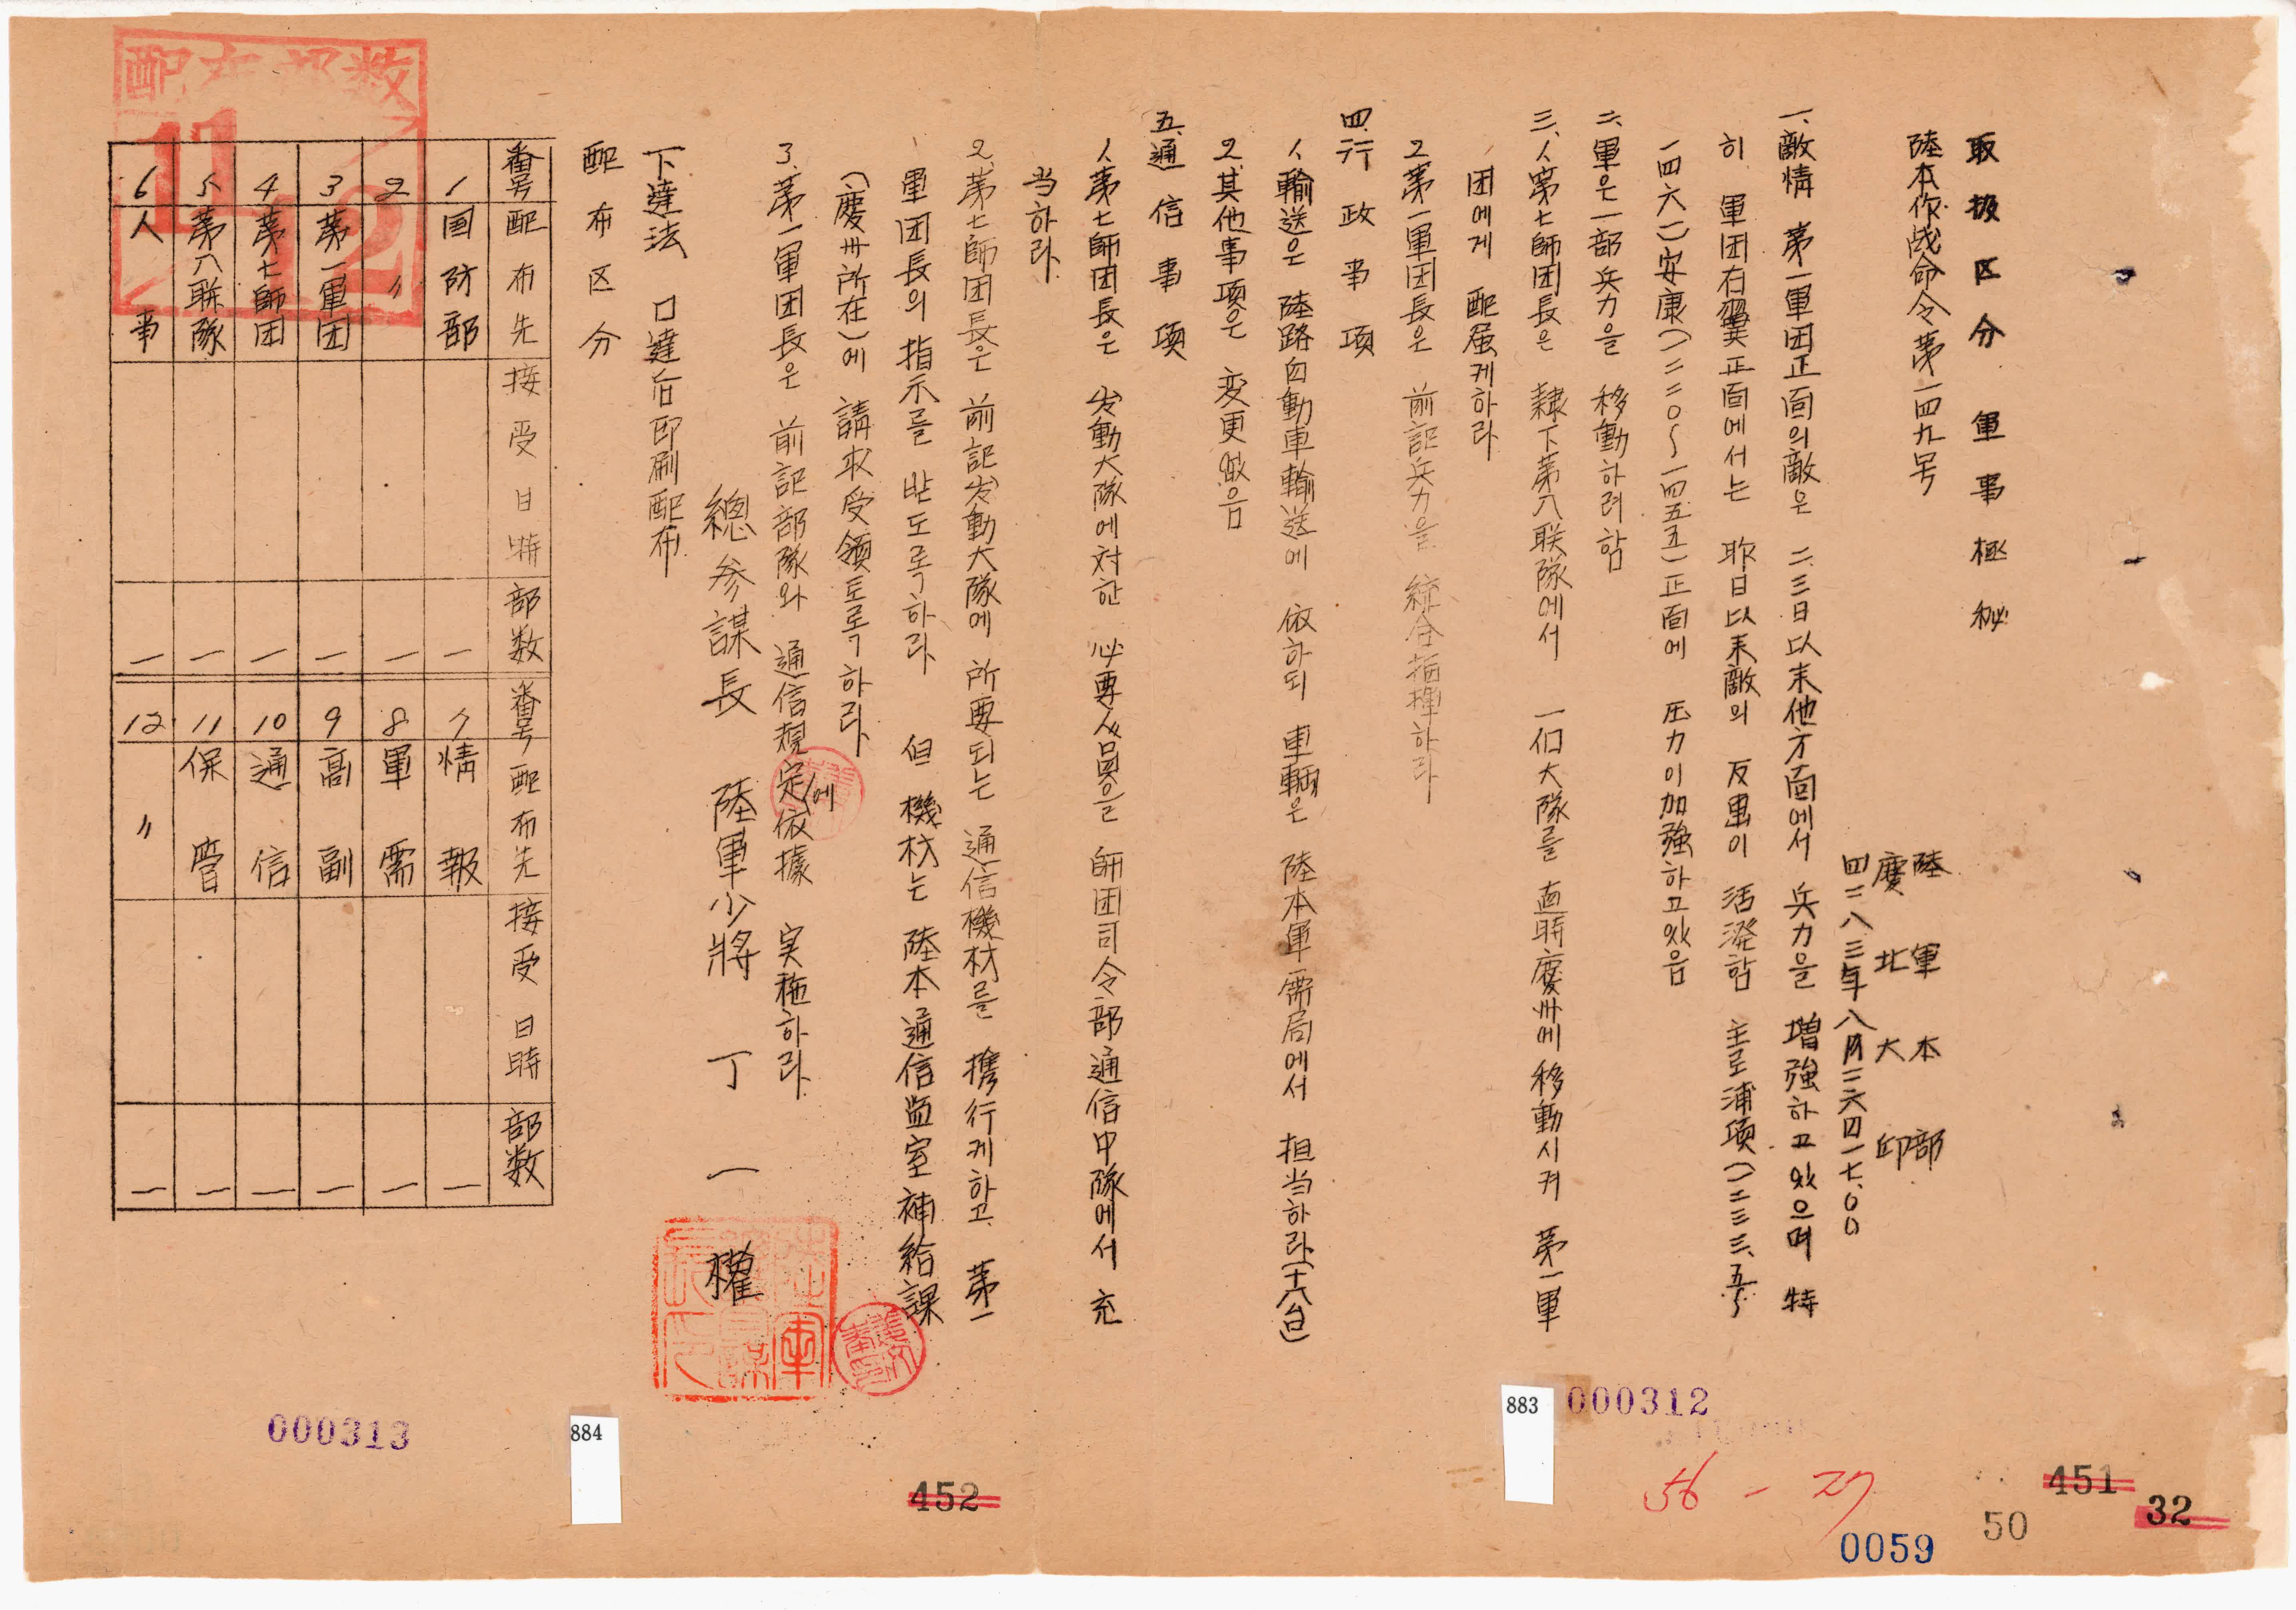 取扱区分 軍事極秘
陸本作战命令第一四九号
陸軍本部
慶北大邱
四二八三年八月二六日一七.00
一. 敵情 第一軍团正面의 敵은 二.三日以来他方面에서 兵力을 増強하고 있으며 特
히 軍团右翼正面에서는 昨日以来敵의 反击이 活潑함 主로 浦項(一二三三.五~
一四六一)安康(一二二0~一四五五)正面에 圧力이 加強하고 있음
二. 軍은 一部兵力을 移動하려 함
三. 1. 第七師团長은 隷下第八联隊에서 一個大隊를 直時慶州에 移動시켜 第一軍
团에게 配屬케하라
2. 第一軍团長은 前記兵力을 統合指揮하라
四. 行政事項
1. 輸送은 陸路自動車輸送에 依하되 車輌은 陸本軍需局에서 担当하라(十八台)
2. 其他事項은 变更없음
五. 通信事項
1. 第七師团長은 出動大隊에 対한 必要人員을 師团司令部通信中隊에서 充
当하라
2. 第七師团長은 前記出動大隊에 所要되는 通信機材를 携行케하고 第一
軍团長의 指示를 받도록하라 但 機材는 陸本通信监室補給課
(慶州所在)에 請求受領토록 하라
3. 第一軍团長은 前記部隊와 通信規定에依據 実施하라
總参謀長 陸軍少將 丁一權
下達法 口達后印刷配布
配布区分
番号 配布先 接受日時 部数 番号 配布先 接受日時 部数
1 国防部 一 7 情報 一
2 〃 一 8 軍需 一
3 第一軍团 一 9 高副 一
4 第七師团 一 10 通信 一
5 第八联隊 一 11 保管 一
6 人事 一 12 〃 一
配布部数
11
12
000313
884
452
883
000312
56 - 27
451
32
50
0059